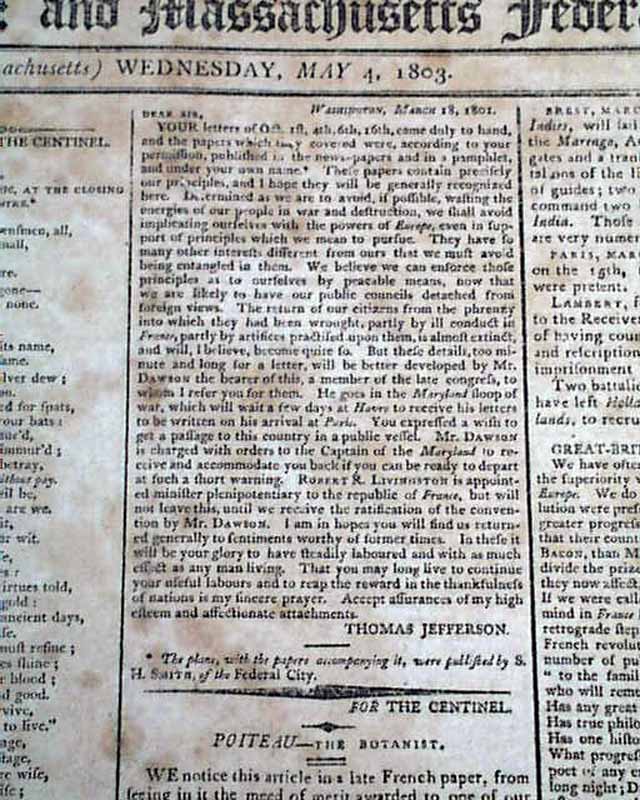 and Massachusetts Feder
achusetts) WEDNESDAY, MAY 4, 1803.
THE CENTINEL.
AT THE CLOSING
all,
mall,
re.
gone—
none.
its name,
ame.
lver dew ;
ed for ſpats,
our bats :
immur'd ;
betray,
ithout pay.
ill be,
are we.
it,
ur wit.
irtues told,
gold :
ancient days,
muſt refine ;
es ſhine ;
r blood ;
d good.
rvive,
to live."
age,
tage,
re wiſe,
DEAR SIR, WASHINGTON, MARCH 18, 1801.
YOUR letters of Oct. 1ſt, 4th, 6th, 16th, came duly to hand,
and the papers which they covered were, according to your
permiſſion, publiſhed in the news-papers and in a pamphlet,
and under your own name.* Theſe papers contain preciſely
our principles, and I hope they will be generally recognized
here. Determined as we are to avoid, if poſſible, waſting the
energies of our people in war and deſtruction, we ſhall avoid
implicating ourſelves with the powers of Europe, even in ſup-
port of principles which we mean to purſue. They have ſo
many other intereſts different from ours that we muſt avoid
being entangled in them. We believe we can enforce thoſe
principles as to ourſelves by peacable means, now that
we are likely to have our public councils detached from
foreign views. The return of our citizens from the phrenzy
into which they had been wrought, partly by ill conduct in
France, partly by artifices practiſed upon them, is almoſt extinct,
and will, I believe, become quite ſo. But theſe details, too mi-
nute and long for a letter, will be better developed by Mr.
DAWSON the bearer of this, a member of the late congreſs, to
whom I refer you for them. He goes in the Maryland ſloop of
war, which will wait a few days at Havre to receive his letters
to be written on his arrival at Paris. You expreſſed a wiſh to
get a paſſage to this country in a public veſſel. Mr. DAWSON
is charged with orders to the Captain of the Maryland to re-
ceive and accommodate you back if you can be ready to depart
at ſuch a ſhort warning. ROBERT R. LIVINGSTON is appoint-
ed miniſter plenipotentiary to the republic of France, but will
not leave this, until we receive the ratification of the conven-
tion by Mr. DAWSON. I am in hopes you will find us return-
ed generally to ſentiments worthy of former times. In theſe it
will be your glory to have ſteadily laboured and with as much
effect as any man living. That you may long live to continue
your uſeful labours and to reap the reward in the thankfulneſs
of nations is my ſincere prayer. Accept aſſurances of my high
eſteem and affectionate attachments.
THOMAS JEFFERSON.
* The plans, with the papers accompanying it, were publiſhed by S.
H. SMITH, of the Federal City.
FOR THE CENTINEL.
POITEAU—THE BOTANIST.
WE notice this article in a late French paper, from
ſeeing in it the meed of merit awarded to one of our
BREST, MARC
Indies, will ſail
the Marengo, A
gates and a tran
talions of the li
of guides ; two
command two
India. Thoſe
are very numer
PARIS, MAR
on the 15th,
were preſent.
LAMBERT,
to the Receiver
of having coun
and reſcription
impriſonment
Two battalio
have left Holla
lands, to recru
GREAT-BRIT
We have oft
the ſuperiority
Europe. We do
lution were pref
greater progreſs
that their count
BACON, than M
divide the prize
they now affect
If we were call
mind in France
retrograde ſtep
French revolut
number of pu
" to the famil
who will reme
Has any great
Has true philo
Has one hiſto
What progreſ
poet of any c
long night ; D